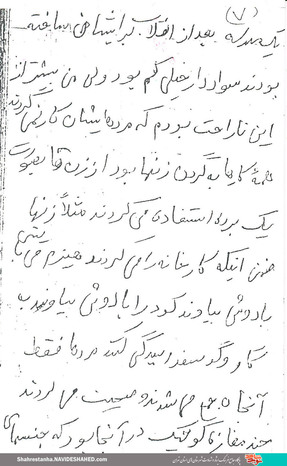 (۷)
یک مدرسه بعد از انقلاب برایشان ساخته
بودند سواددار خیلی کم بود ولی من بیشتر از
این ناراحت بودم که مردهایشان کار نمی کردند
همهٔ کارها به گردن زنها بود از زن ها بصورت
یک برده استفاده می کردند مثلاً زنها
ضمن اینکه کار خانه را می کردند هیزم می
با دوش بیاوند کود را با دوش بیاوند به
گاو و گوسفند رسیدگی کنند مردها فقط
آنجا جمع می شدند و صحبت می کردند
چند مغازه کوچک در آنجا بود که جنسهای
Shahrestanha.NAVIDESHAHED.com